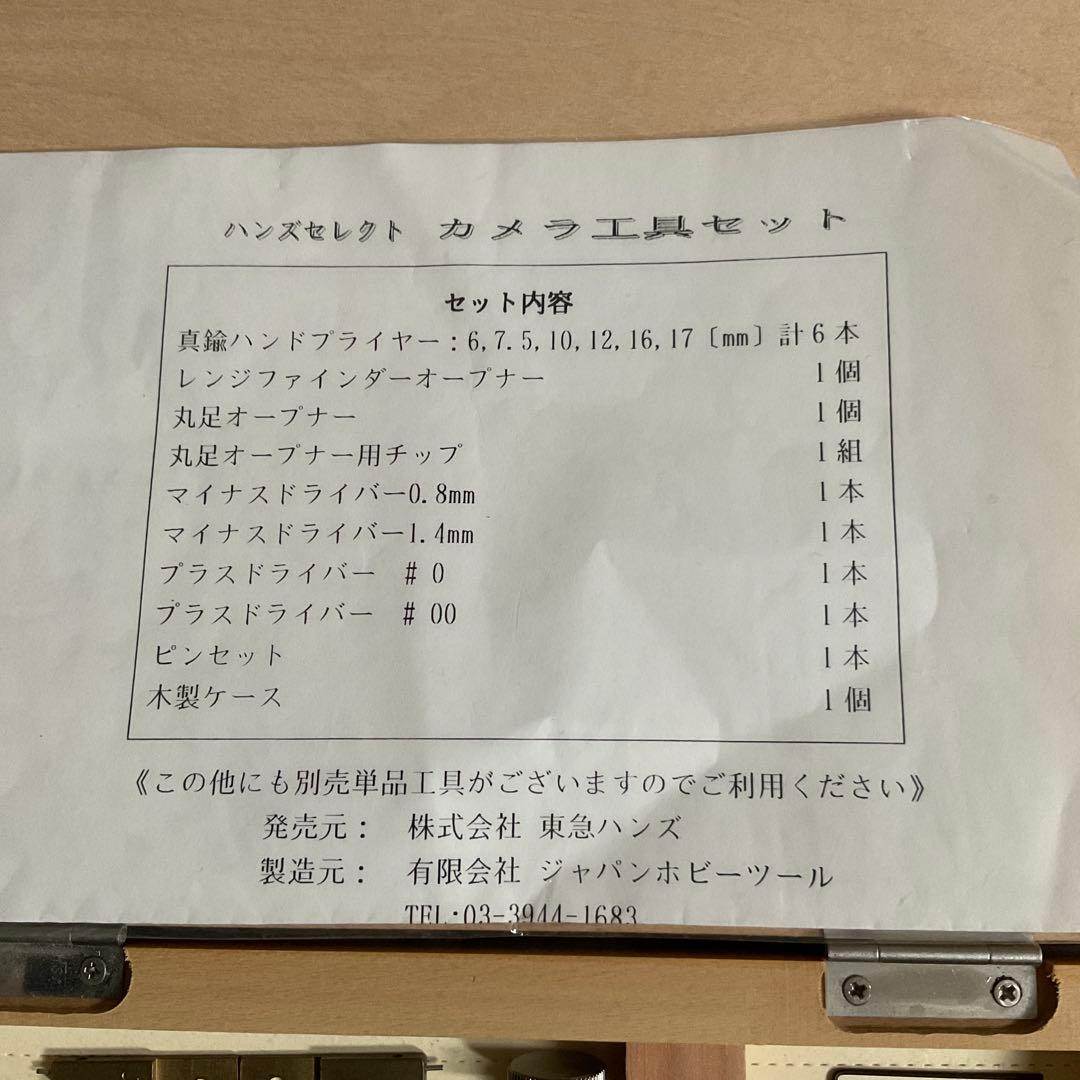 ハンズセレクト カメラ工具セット
セット内容
真鍮ハンドプライヤー：6,7.5,10,12,16,17〔mm〕計6本
レンジファインダーオープナー 1個
丸足オープナー 1個
丸足オープナー用チップ 1組
マイナスドライバー0.8mm 1本
マイナスドライバー1.4mm 1本
プラスドライバー ＃0 1本
プラスドライバー ＃00 1本
ピンセット 1本
木製ケース 1個
《この他にも別売単品工具がございますのでご利用ください》
発売元： 株式会社 東急ハンズ
製造元： 有限会社 ジャパンホビーツール
TEL:03-3944-1683